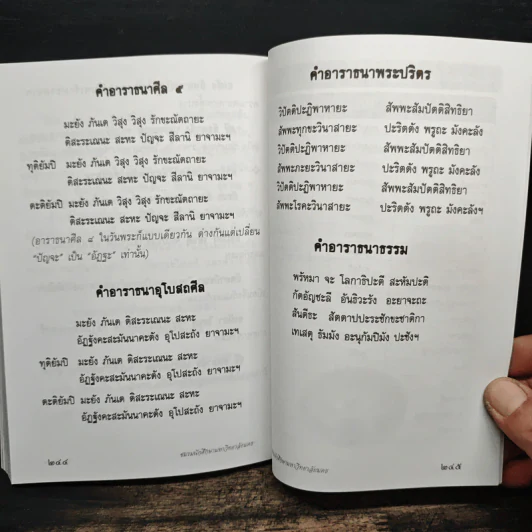 คำอาราธนาศีล ๕
มะยัง ภันเต วิสุง วิสุง รักขะณัตถายะ
ติสะระเณนะ สะหะ ปัญจะ สีลานิ ยาจามะฯ
ทุติยัมปิ มะยัง ภันเต วิสุง วิสุง รักขะณัตถายะ
ติสะระเณนะ สะหะ ปัญจะ สีลานิ ยาจามะฯ
ตะติยัมปิ มะยัง ภันเต วิสุง วิสุง รักขะณัตถายะ
ติสะระเณนะ สะหะ ปัญจะ สีลานิ ยาจามะฯ
(อาราธนาศีล ๘ ในวันพระก็แบบเดียวกัน ต่างกันแต่เปลี่ยน
"ปัญจะ" เป็น "อัฏฐะ" เท่านั้น)
คำอาราธนาอุโบสถศีล
มะยัง ภันเต ติสะระเณนะ สะหะ
อัฏฐังคะสะมันนาคะตัง อุโปสะถัง ยาจามะฯ
ทุติยัมปิ มะยัง ภันเต ติสะระเณนะ สะหะ
อัฏฐังคะสะมันนาคะตัง อุโปสะถัง ยาจามะฯ
ตะติยัมปิ มะยัง ภันเต ติสะระเณนะ สะหะ
อัฏฐังคะสะมันนาคะตัง อุโปสะถัง ยาจามะฯ
๒๔๔
คำอาราธนาพระปริตร
วิปัตติปะฏิพาหายะ สัพพะสัมปัตติสิทธิยา
สัพพะทุกขะวินาสายะ ปะริตตัง พรูถะ มังคะลัง
วิปัตติปะฏิพาหายะ สัพพะสัมปัตติสิทธิยา
สัพพะภะยะวินาสายะ ปะริตตัง พรูถะ มังคะลัง
วิปัตติปะฏิพาหายะ สัพพะสัมปัตติสิทธิยา
สัพพะโรคะวินาสายะ ปะริตตัง พรูถะ มังคะลังฯ
คำอาราธนาธรรม
พรัหมา จะ โลกาธิปะตี สะหัมปะติ
กัตอัญชะลี อันธิวะรัง อะยาจะถะ
สันตีธะ สัตตาปปะระชักขะชาติกา
เทเสตุ ธัมมัง อะนุกัมปิมัง ปะชังฯ
๒๔๕